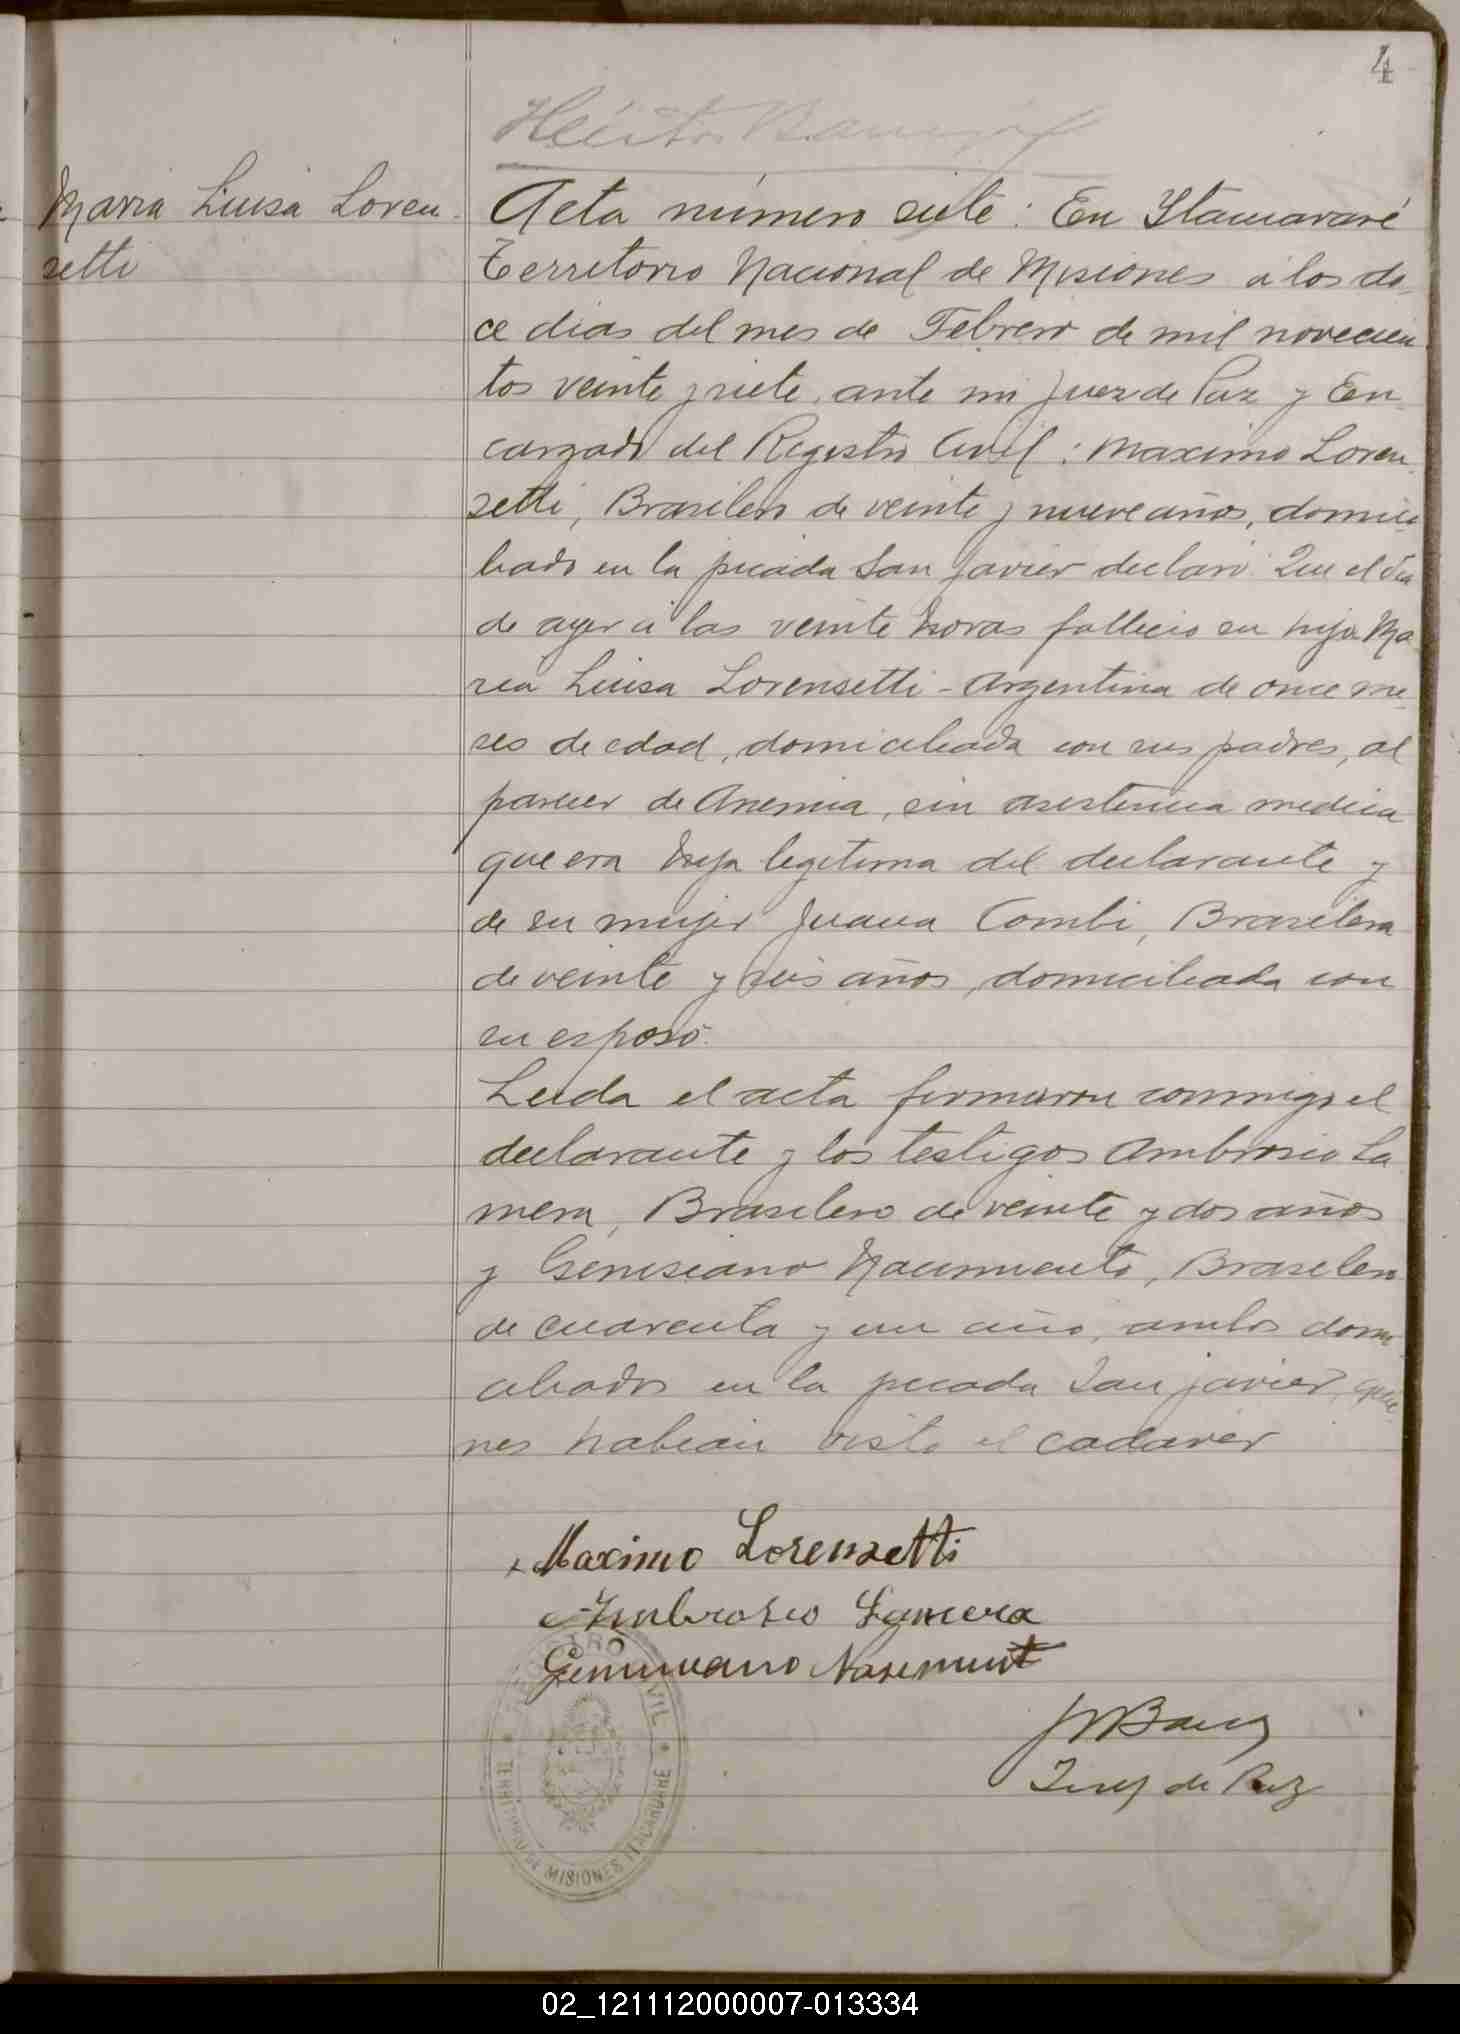 4
Héctor
Maria Luisa Loren-
setti
Acta número siete: En Itacuararé
Territorio Nacional de Misiones á los do-
ce dias del mes de Febrero de mil novecien
tos veinte y siete, ante mi Juez de Paz y En
cargado del Registro Civil: Maximo Loren-
setti, Brasilero de veinte y nueve años, domici-
liado en la picada San Javier declaró: Que el dia
de ayer á las veinte horas fallecio su hija Ma
ria Luisa Lorensetti - Argentina de once me-
ses de edad, domiciliada con sus padres, al
parecer de Anemia, sin asistencia medica
que era hija legitima del declarante y
de su mujer Juana Combi, Brasilera
de veinte y seis años, domiciliada con
su esposo.
Leida el acta firmaron conmigo el
declarante y los testigos Ambrosio La
mera, Brasilero de veinte y dos años
y Genesiano Nacimiento, Brasilero
de cuarenta y un año, ambos domi-
ciliados en la picada San Javier, quie-
nes habian visto el cadaver
Maximo Lorensetti
Ambrosio Lamera
Nasemento
Juez de Paz
REGISTRO CIVIL
TERRITORIO DE MISIONES ITACARUARÉ
02_121112000007-013334